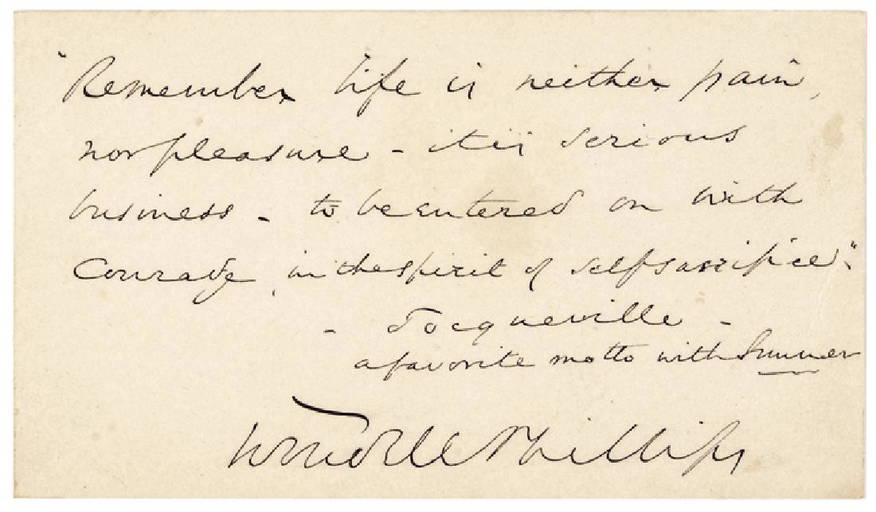 "Remember life is neither pain,
nor pleasure - it is serious
business - to be entered on with
courage, in the spirit of self sacrifice."
- Tocqueville -
a favorite motto with Sumner
Wendell Phillips